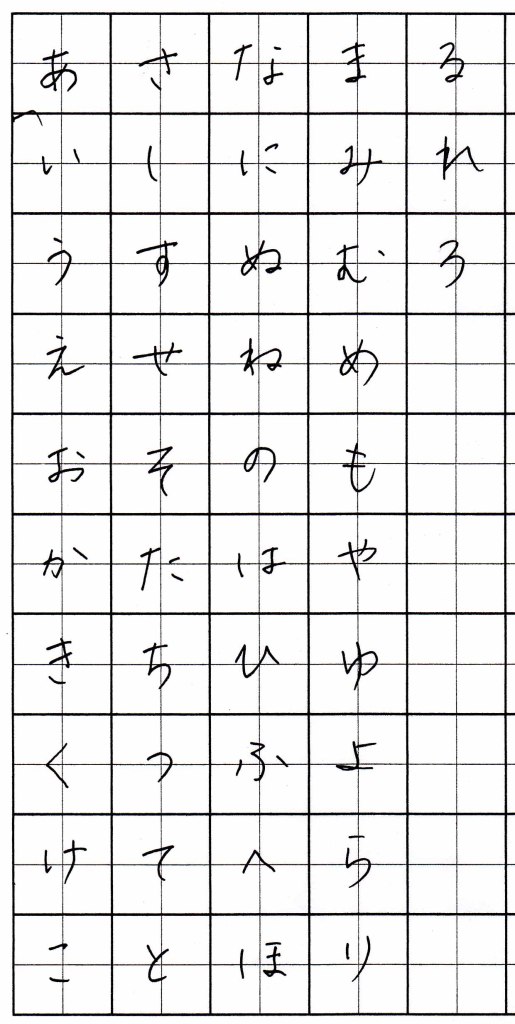 あさなまる
いしにみれ
うすぬむろ
えせねめ
おそのも
かたはや
きちひゆ
くつふよ
けてへら
ことほり